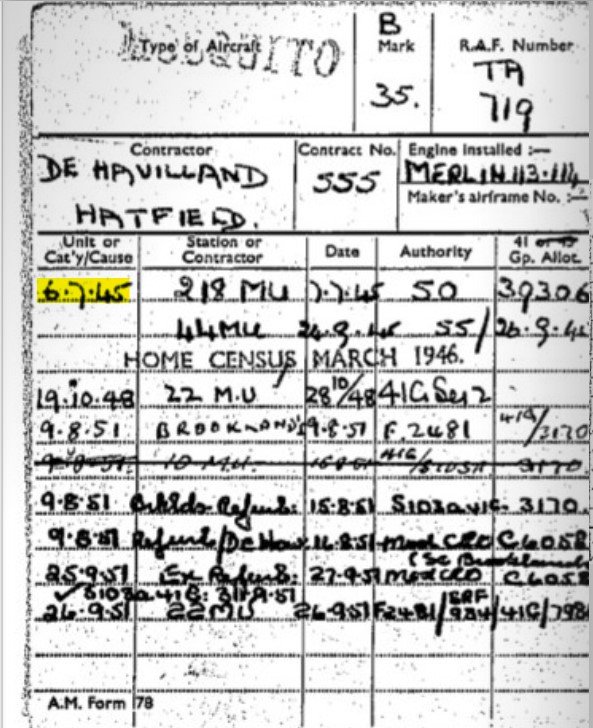 B
Type of Aircraft Mark R.A.F. Number
MOSQUITO 35. TA
719
Contractor Contract No. Engine Installed :—
DE HAVILLAND 555 MERLIN 113.114
Maker's airframe No. :—
HATFIELD.
Unit or Station or Date Authority 41 or 43
Cat'y/Cause Contractor Gp. Allot.
6.7.45 218 MU 7.7.45 50 39306
44 MU 55/
HOME CENSUS MARCH 1946.
19.10.48 22 M.U 28/10/48 41G Ser 2
9.8.51 BROOKLANDS 9.8.51 F.2481 41G/3170
9.8.51 10 M.U. 3170.
9.8.51 Refurb: 15.8.51 S103a 41G. 3170.
9.8.51 Refurb/De Hav 16.8.51 CRO C6058
25.9.51 Ex Refurb: 27.9.51 CRO C6058
S103a. 41G:
26.9.51 22 MU 26.9.51 F2481/ 41G/798
A.M. Form 78